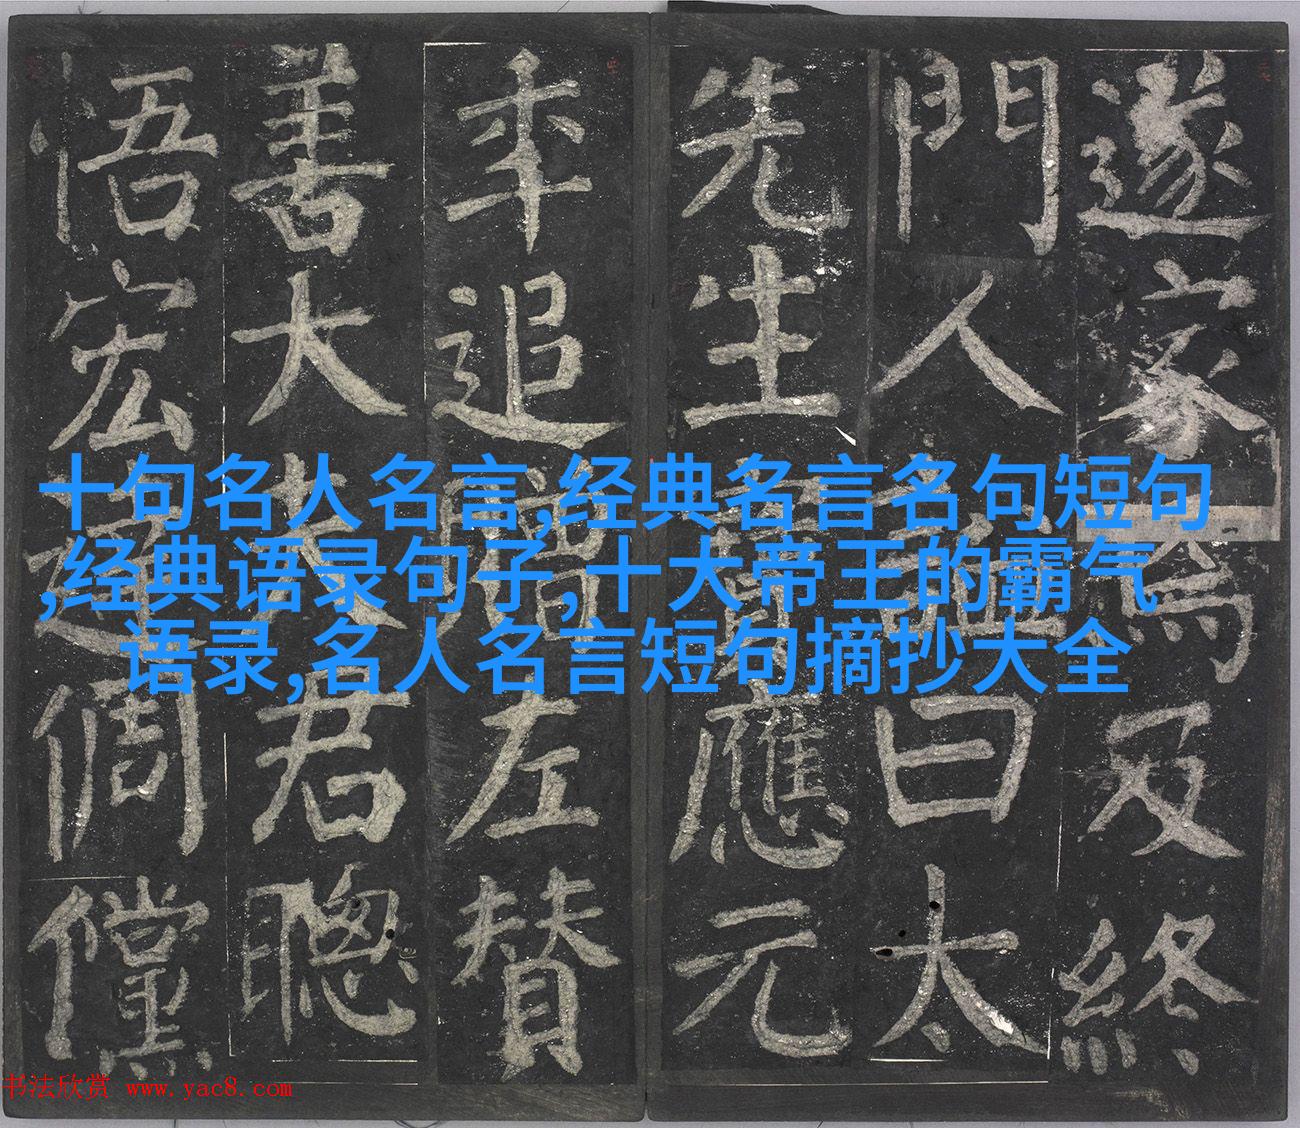 遂家焉及終
門人諡曰太
先生寶應元
年追贈左贊
善大夫君聰
悟宏達倜儻
十句名人名言,经典名言名句短句
,经典语录句子,十大帝王的霸气
语录,名人名言短句摘抄大全
书法欣赏 www.yac8.com